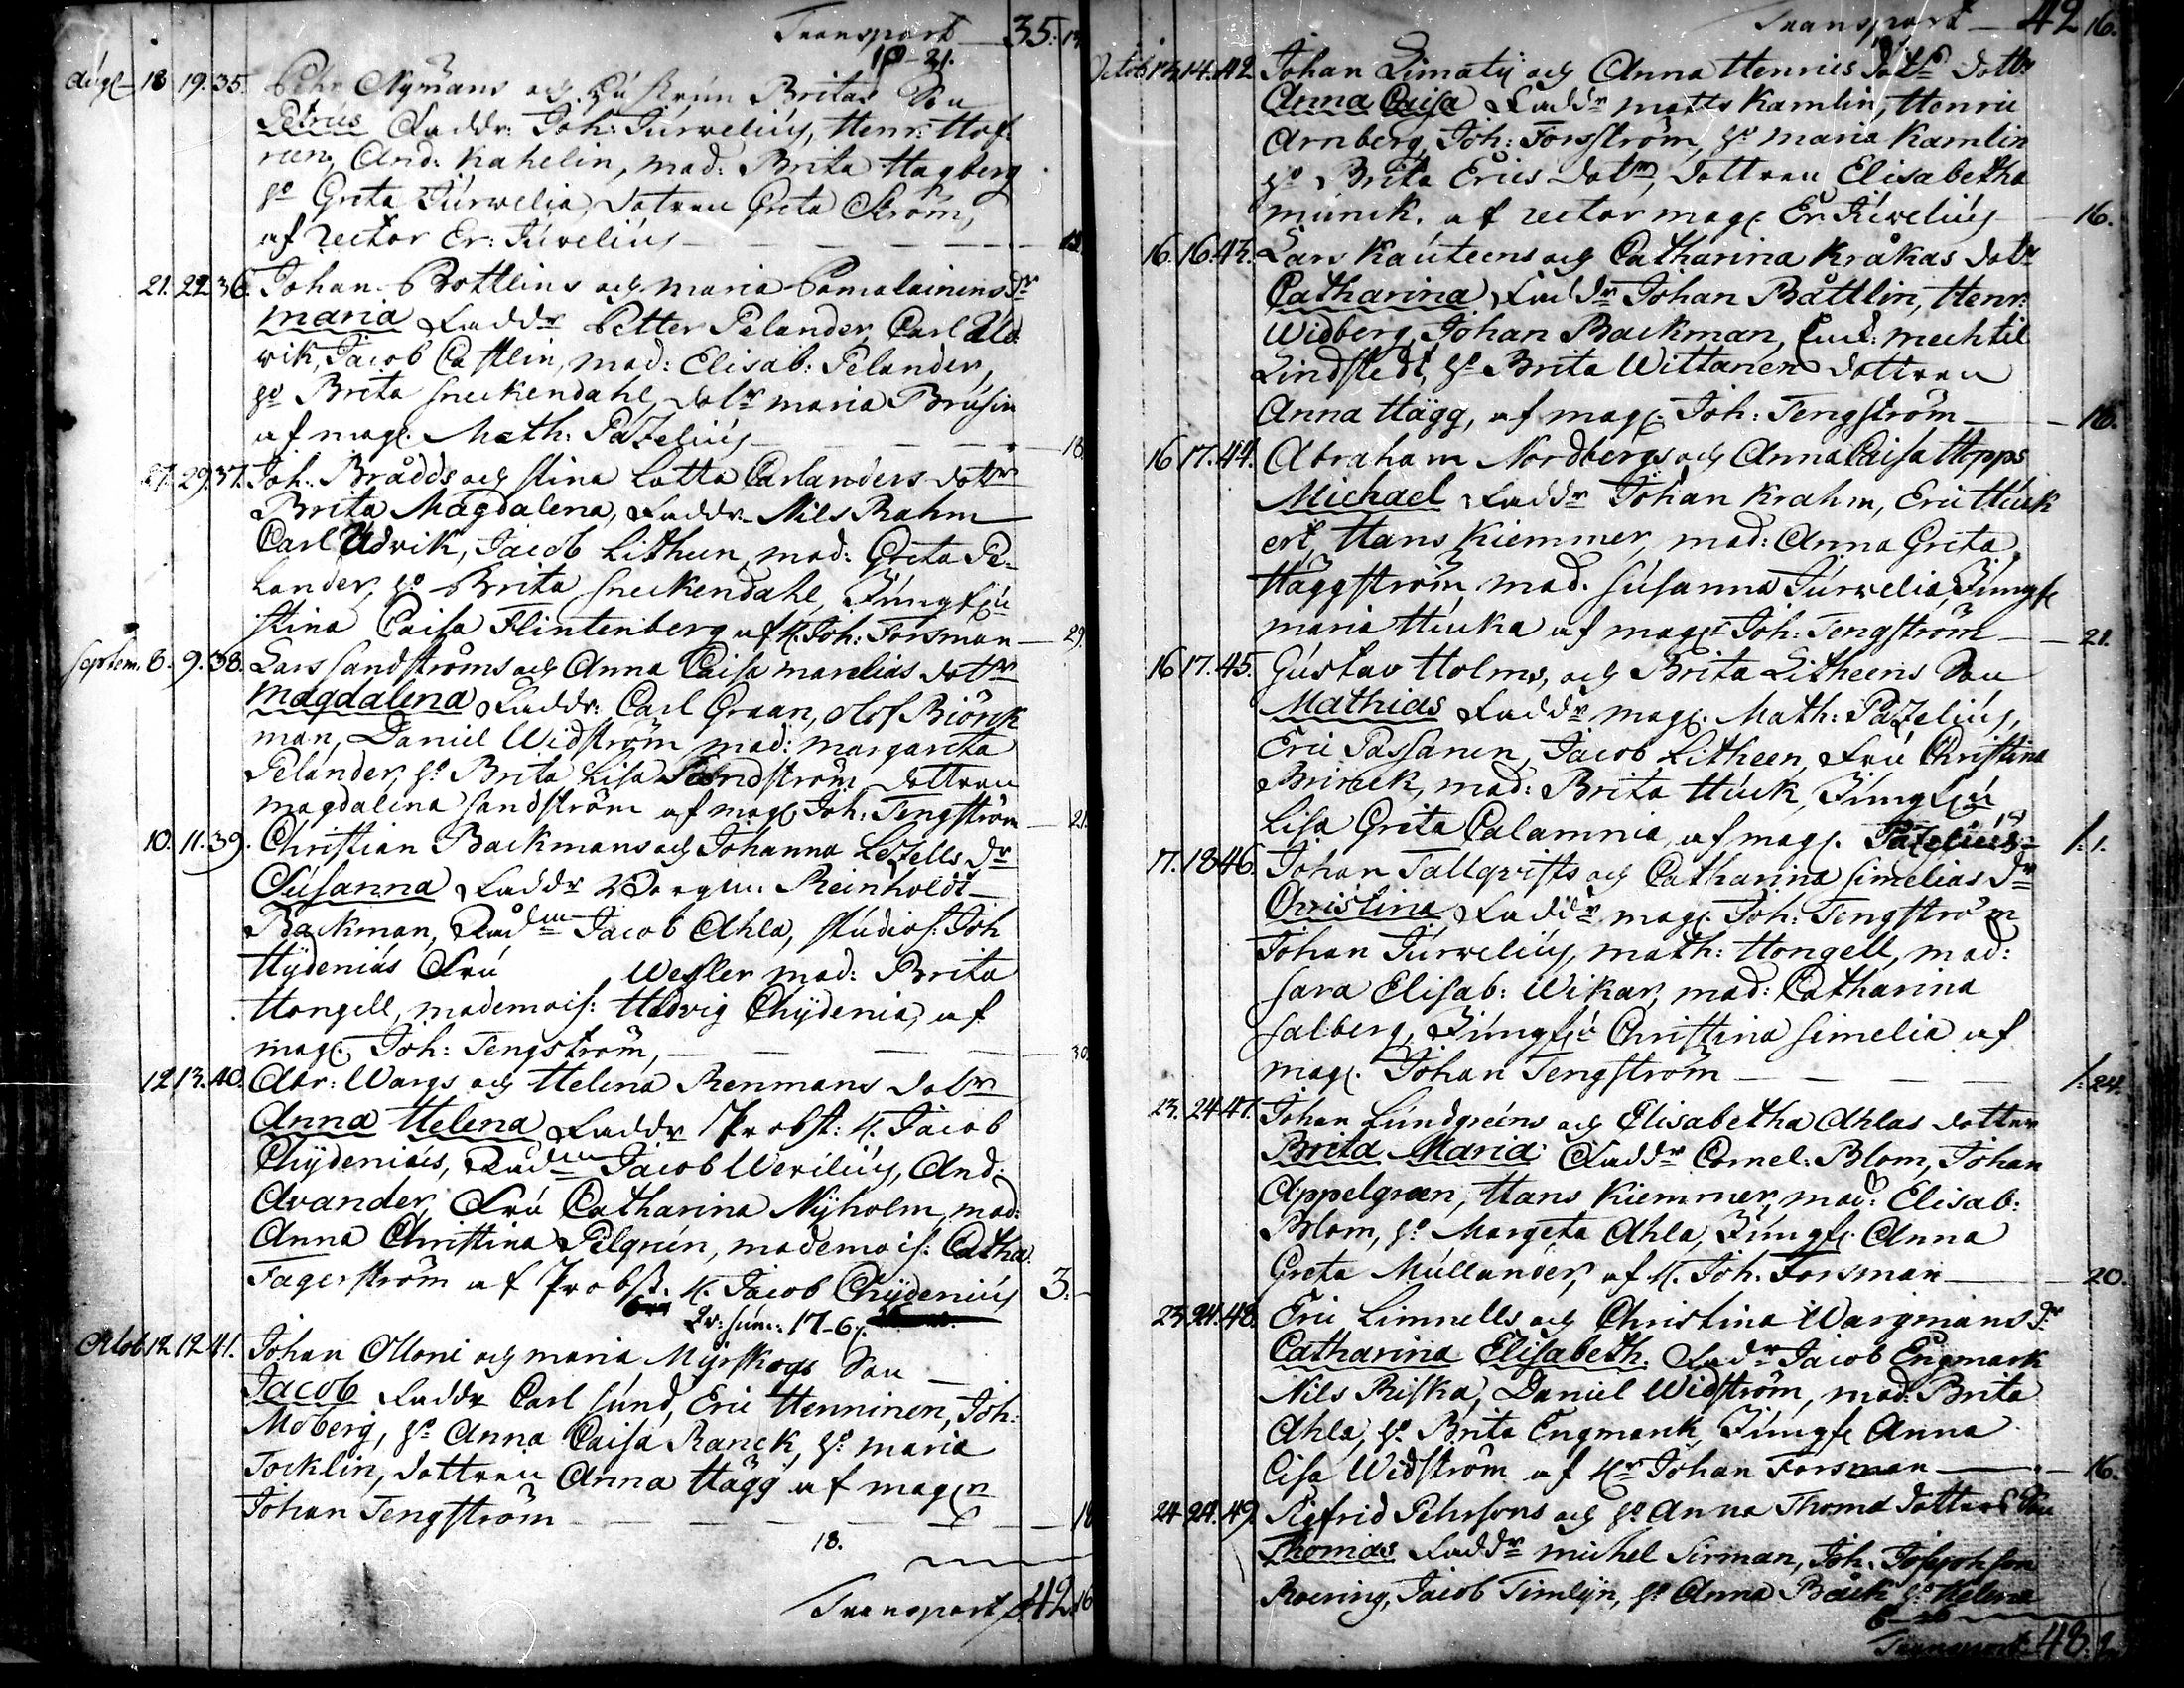 Transport 35.
19-21.
Aug. 18 19. 35. Pehr Nymans och Britas Son
Petrus Faddr: Joh: Turvelius, Henr: Hof
reen, And: Kahelin, mad: Brita Hagberg
hu Greta Turvelia, dotren Greta Ström,
af rector Er: Juvelius
21. 22 36. Johan Bottlins och Maria Pamalainens dr
Maria Faddr Petter Pelander, Carl Ud
vik, Jacob Castlin, mad: Elisab: Pelander,
hu Brita Sneckendahl, dotr Maria Brusin
af mag. Math: Pazelius 18.
27. 29. 37. Joh. Brådds och Stina Lotta Carlanders dottr
Brita Magdalena, Faddr Nils Rahm
Carl Udvik, Jacob Litheen, mad: Greta Pe-
lander, hu Brita Sneckendahl, Jungfru
Stina Caisa Flintenberg af H. Joh: Forsman 29.
Septem. 8. 9. 38. Lars Sandströms och Anna Caisa Marelias dotr
Magdalena Faddr: Carl Graan, Olof Biörk
man, Daniel Widström mad: Margareta
Pelander, hu Brita Lisa Sandström dottren
Magdalena Sandström af mag. Joh: Tengström 21.
10. 11. 39. Christian Backmans och Johanna Lezells dr
Susanna Faddr Borgm: Reinholdt
Backman, Rådm Jacob Ahla, Studios: Joh
Hydenius Fru Wesler mad: Brita
Hongell, mademois: Hedvig Chydenia, af
mag. Joh: Tengström, 30.
12 13. 40. Abr: Wargs och Helena Renmans dotr
Anna Helena Faddr Probst: H. Jacob
Chydenius, Rådm Jacob Werilius, And:
Avander, Fru Catharina Nyholm, mad:
Anna Christina Pelgrin, mademois: Catha.
Fagerström af Probst. H. Jacob Chydenius 3.
17-6
Octob 12. 12 41. Johan Olloni och Maria Myrskogs Son
Jacob Faddr Carl Sund, Eric Henninen, Joh:
Moberg, hu Anna Caisa Ranck, hu Maria
Tocklin, dottren Anna Hägg af mag
Johan Tengström 18
18.
Transport 42.16
Transport 42 16.
Octob 13. 14. 42. Johan Limaty och Anna Henrics dotrs dottr
Anna Caisa Faddr Matts Kamlin, Henric
Arnberg, Joh: Forsström, hu Maria Kamlin
hu Brita Erics dotr, dottren Elisabetha
Munck, af rector mag. Er: Juvelius 16.
16. 16. 43. Lars Kauteens och Catharina Kråkas dotr
Catharina Faddr Johan Båttlin, Henr:
Widberg, Johan Backman, mechtil
Lindstedt, hu Brita Wittanen dottren
Anna Hägg, af mag. Joh: Tengström 16.
16 17. 44. Abraham Nordbergs och Anna Caisa Hopps
Michael Faddr Johan Krahm, Eric Huck
ert, Hans Kiemmer, mad: Anna Greta
Häggström, mad. Susanna Turvelia, Jungf
Maria Hucka af mag. Joh: Tengström 21.
16 17. 45. Gustav Holms, och Brita Litheens Son
Mathias Faddr mag. Math: Pazelius,
Eric Passanen, Jacob Litheen, Fru Christina
Brinck, mad: Brita Huck, Jungfru
Lisa Greta Calamnia, af mag. Pazelius 1:1.
17. 18 46. Johan Tallqvists och Catharina Simelias dr
Christina Faddr mag. Joh: Tengström
Johan Turvelius, Math: Hongell, mad:
Sara Elisab: Wikar, mad: Catharina
Salberg, Jungfru Christina Simelia af
mag. Johan Tengström 1:24.
23. 24 47. Johan Lundgreens och Elisabetha Ahlas dotter
Brita Maria Faddr Cornel: Blom, Johan
Appelgren, Hans Kiemmer, mad: Elisab:
Blom, hu Margeta Ahla, Jungf. Anna
Greta Mullander, af H. Joh. Forsman 20.
23 24. 48. Eric Linnells och Christina Wargmans dr
Catharina Elisabeth. Fadr Jacob Engmark
Nils Riska, Daniel Widström, mad: Brita
Ahla, hu Brita Engmark, Jungf Anna
Cisa Widström af Hr Johan Forsman 16.
24 24. 49. Sigfrid Pehrsons och hu Anna Thomae dotters Son
Thomas Faddr Michel Sirman, Joh. Josephson
Roering, Jacob Timlyn, hu Anna Back hu Helena
Transport 48.